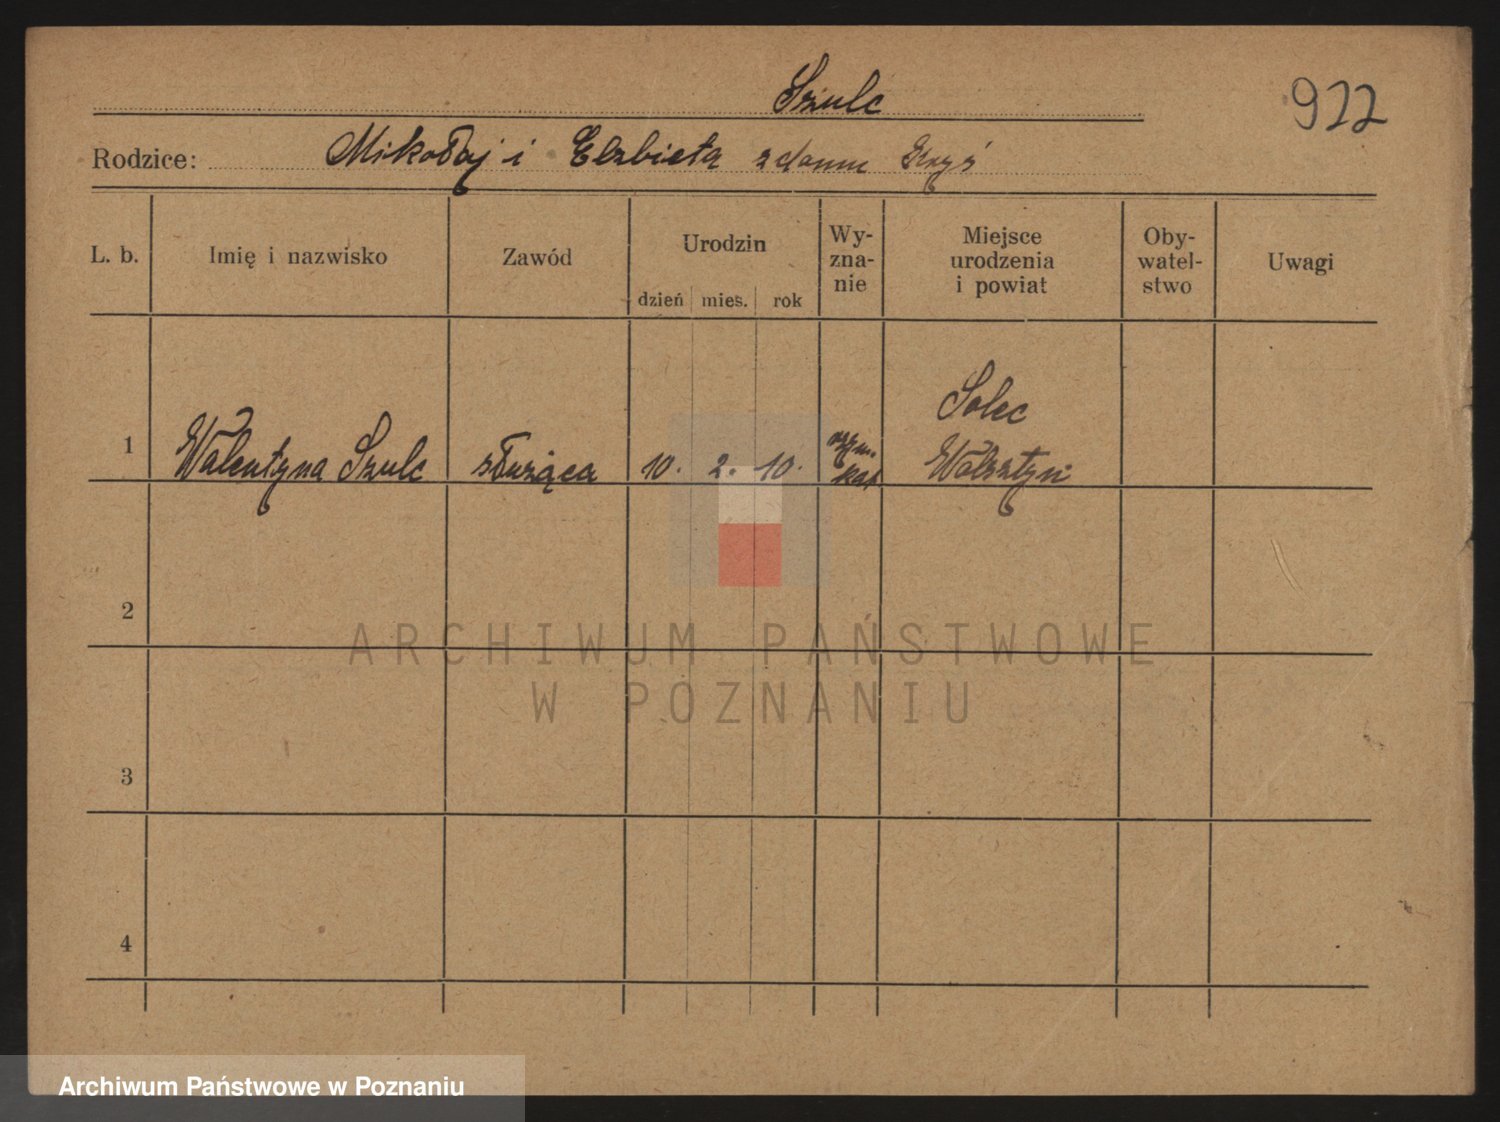 Szulc
922
Rodzice: Mikołaj i Elżbieta z domu Kryś
L. b.
Imię i nazwisko
Zawód
Urodzin
dzień mies. rok
Wy-
zna-
nie
Miejsce
urodzenia
i powiat
Oby-
watel-
stwo
Uwagi
1 Walentyna Szulc służąca 10. 2. 10. rzym. kat Solec Wolsztyn
2
3
4
ARCHIWUM PAŃSTWOWE
W POZNANIU
Archiwum Państwowe w Poznaniu